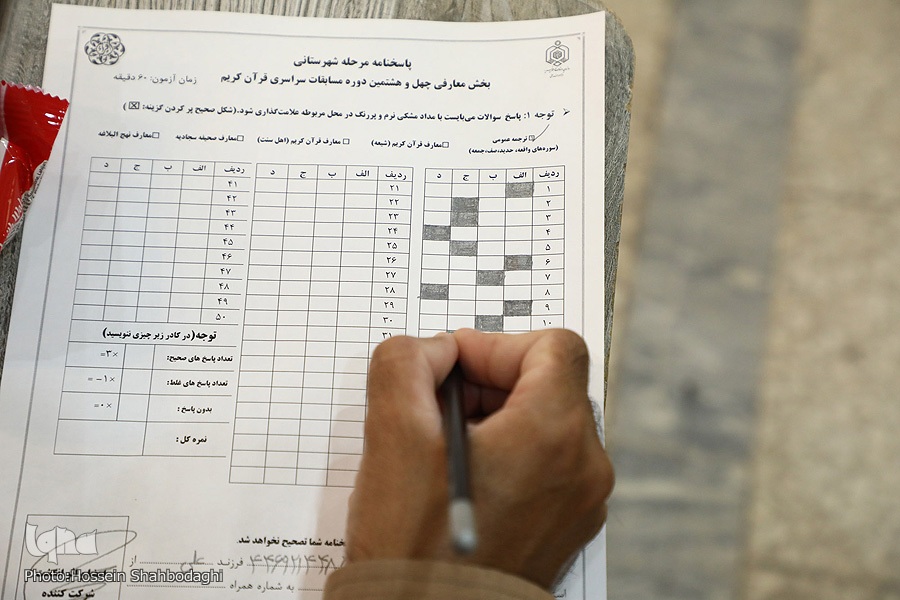 پاسخنامه مرحله شهرستانی
بخش معارفی چهل و هشتمین دوره مسابقات سراسری قرآن کریم
زمان آزمون: ۶۰ دقیقه
توجه ۱: پاسخ سوالات می‌بایست با مداد مشکی نرم و پررنگ در محل مربوطه علامت‌گذاری شود.(شکل صحیح پر کردن گزینه: ☒ )
ترجمه عمومی
(سوره‌های واقعه، حدید،صف،جمعه)
معارف قرآن کریم (شیعه)
معارف قرآن کریم (اهل سنت)
معارف صحیفه سجادیه
معارف نهج البلاغه
ردیف الف ب ج د
۱
۲
۳
۴
۵
۶
۷
۸
۹
۱۰
ردیف الف ب ج د
۲۱
۲۲
۲۳
۲۴
۲۵
۲۶
۲۷
۲۸
۲۹
۳۰
۳۱
ردیف الف ب ج د
۴۱
۴۲
۴۳
۴۴
۴۵
۴۶
۴۷
۴۸
۴۹
۵۰
توجه(در کادر زیر چیزی ننویسید)
تعداد پاسخ های صحیح: ×۳=
تعداد پاسخ های غلط: ×۱-=
بدون پاسخ: ×۰=
نمره کل:
شما تصحیح نخواهد شد.
فرزند علی از
به شماره همراه
شرکت کننده
iqna
Photo:Hossein Shahbodaghi